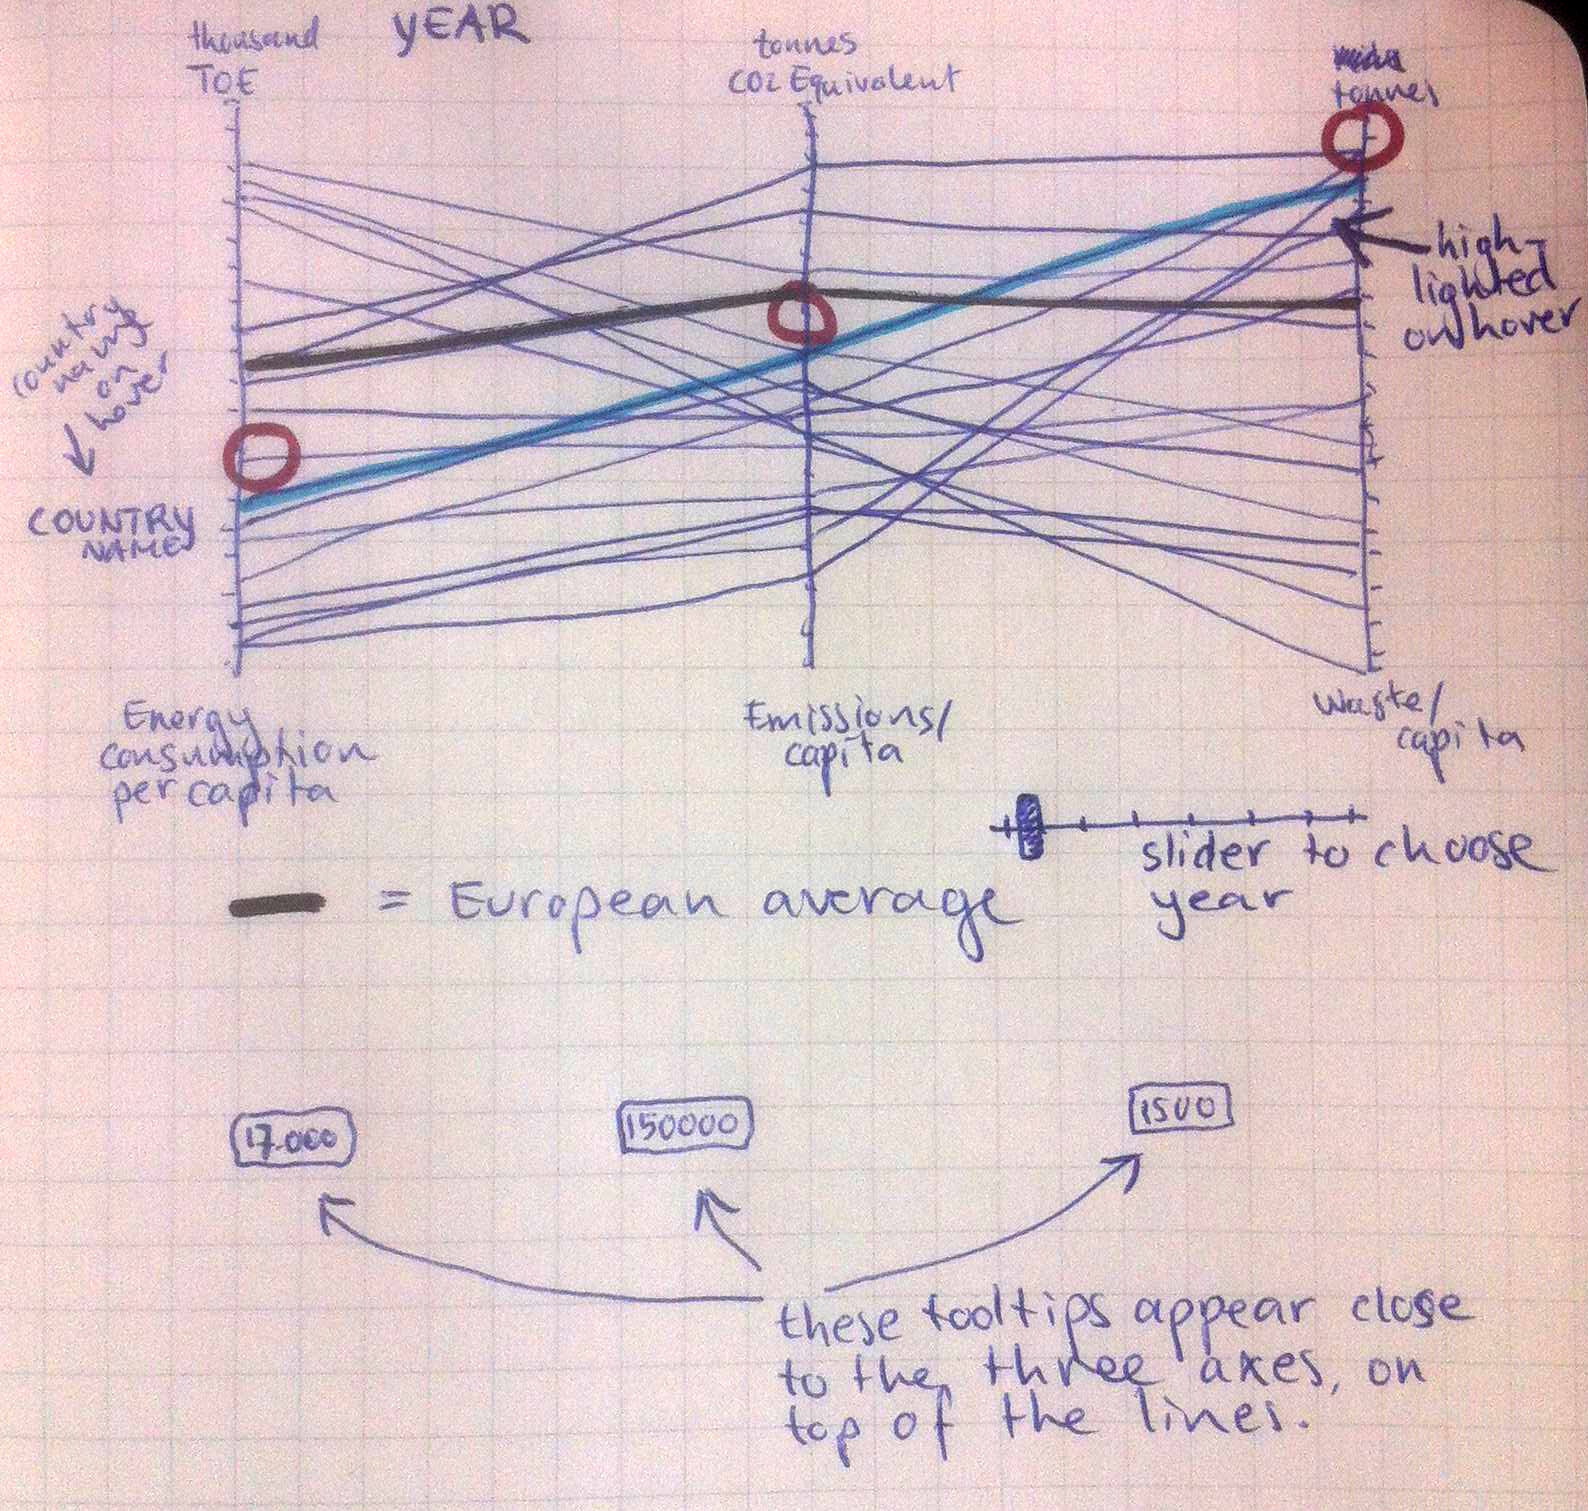 YEAR
thousand
TOE
tonnes
CO2 Equivalent
tonnes
high-
lighted
on hover
country
name
on
hover
COUNTRY
NAME
Energy
consumption
per capita
Emissions/
capita
Waste/
capita
slider to choose
year
= European average
17.000
150000
1500
these tooltips appear close
to the three axes, on
top of the lines.